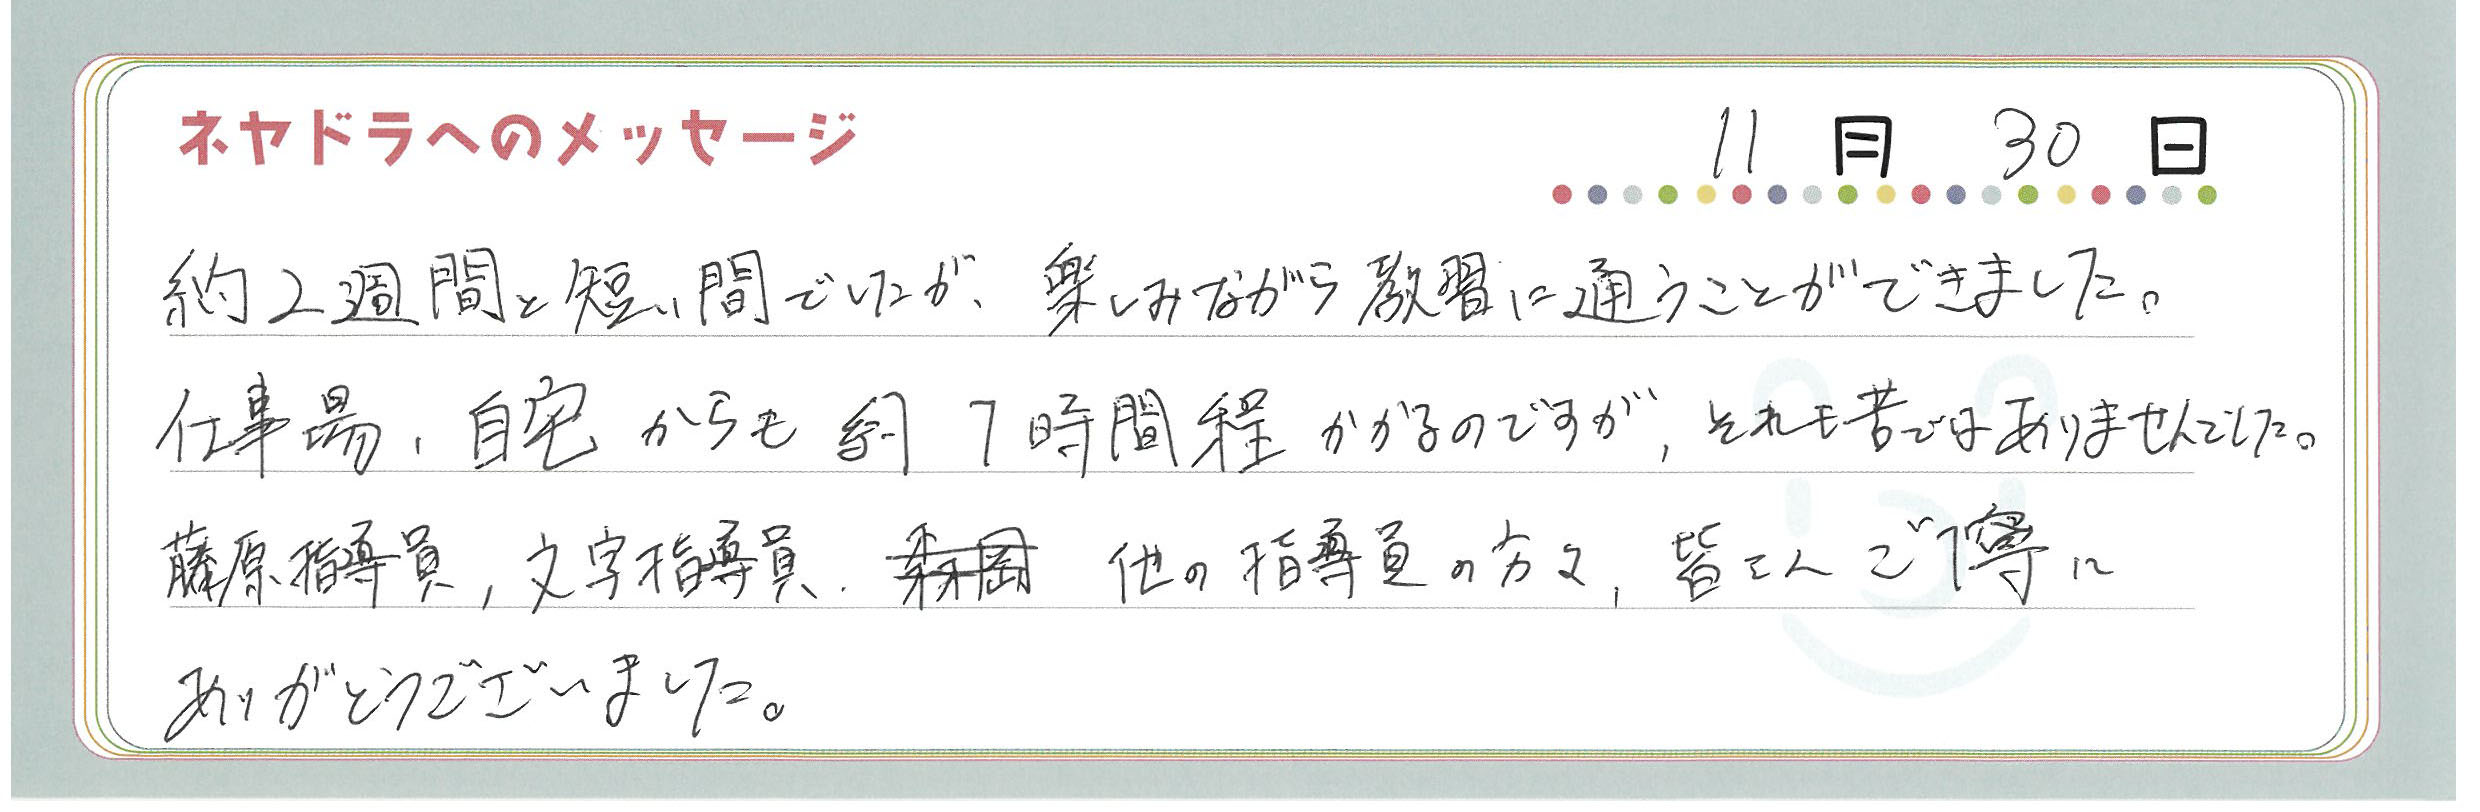 ネヤドラへのメッセージ
11月30日
約2週間と短い間でしたが、楽しみながら教習に通うことができました。
仕事場、自宅からも約1時間程かかるのですが、それも苦ではありませんでした。
藤原指導員、文字指導員、他の指導員の方々、皆さんご丁寧に
ありがとうございました。